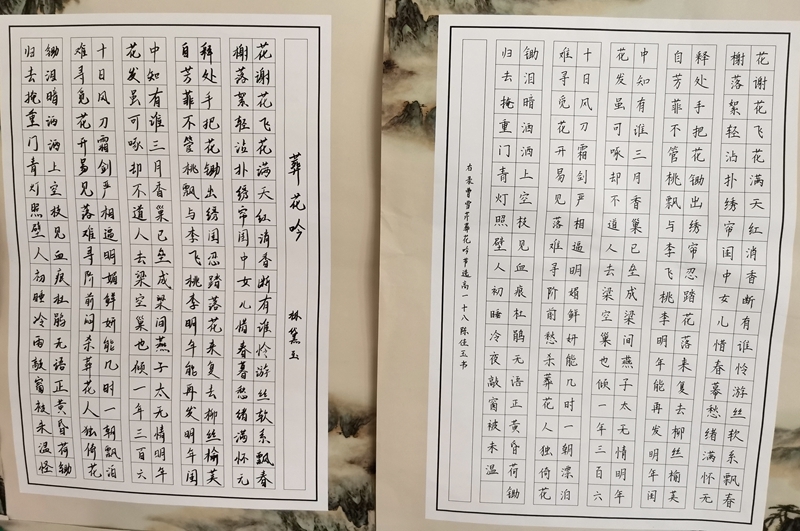 葬花吟 林黛玉
花谢花飞花满天红消香断有谁怜游丝软系飘春
榭落絮轻沾扑绣帘闺中女儿惜春暮愁绪满怀无
释处手把花锄出绣闺忍踏落花来复去柳丝榆荚
自芳菲不管桃飘与李飞桃李明年能再发明年闺
中知有谁三月香巢已垒成梁间燕子太无情明年
花发虽可啄却不道人去梁空巢也倾一年三百六
十日风刀霜剑严相逼明媚鲜妍能几时一朝飘泊
难寻觅花开易见落难寻阶前闷杀葬花人独倚花
锄泪暗洒洒上空枝见血痕杜鹃无语正黄昏荷锄
归去掩重门青灯照壁人初睡冷雨敲窗被未温怪
花谢花飞花满天红消香断有谁怜游丝软系飘春
榭落絮轻沾扑绣帘闺中女儿惜春暮愁绪满怀无
释处手把花锄出绣帘忍踏花落来复去柳丝榆荚
自芳菲不管桃飘与李飞桃李明年能再发明年闺
中知有谁三月香巢已垒成梁间燕子太无情明年
花发虽可啄却不道人去梁空巢也倾一年三百六
十日风刀霜剑严相逼明媚鲜妍能几时一朝漂泊
难寻觅花开易见落难寻阶前愁杀葬花人独倚花
锄泪暗洒洒上空枝见血痕杜鹃无语正黄昏荷锄
归去掩重门青灯照壁人初睡冷夜敲窗被未温
右录曹雪芹葬花吟节选高一十八陈佳玉书